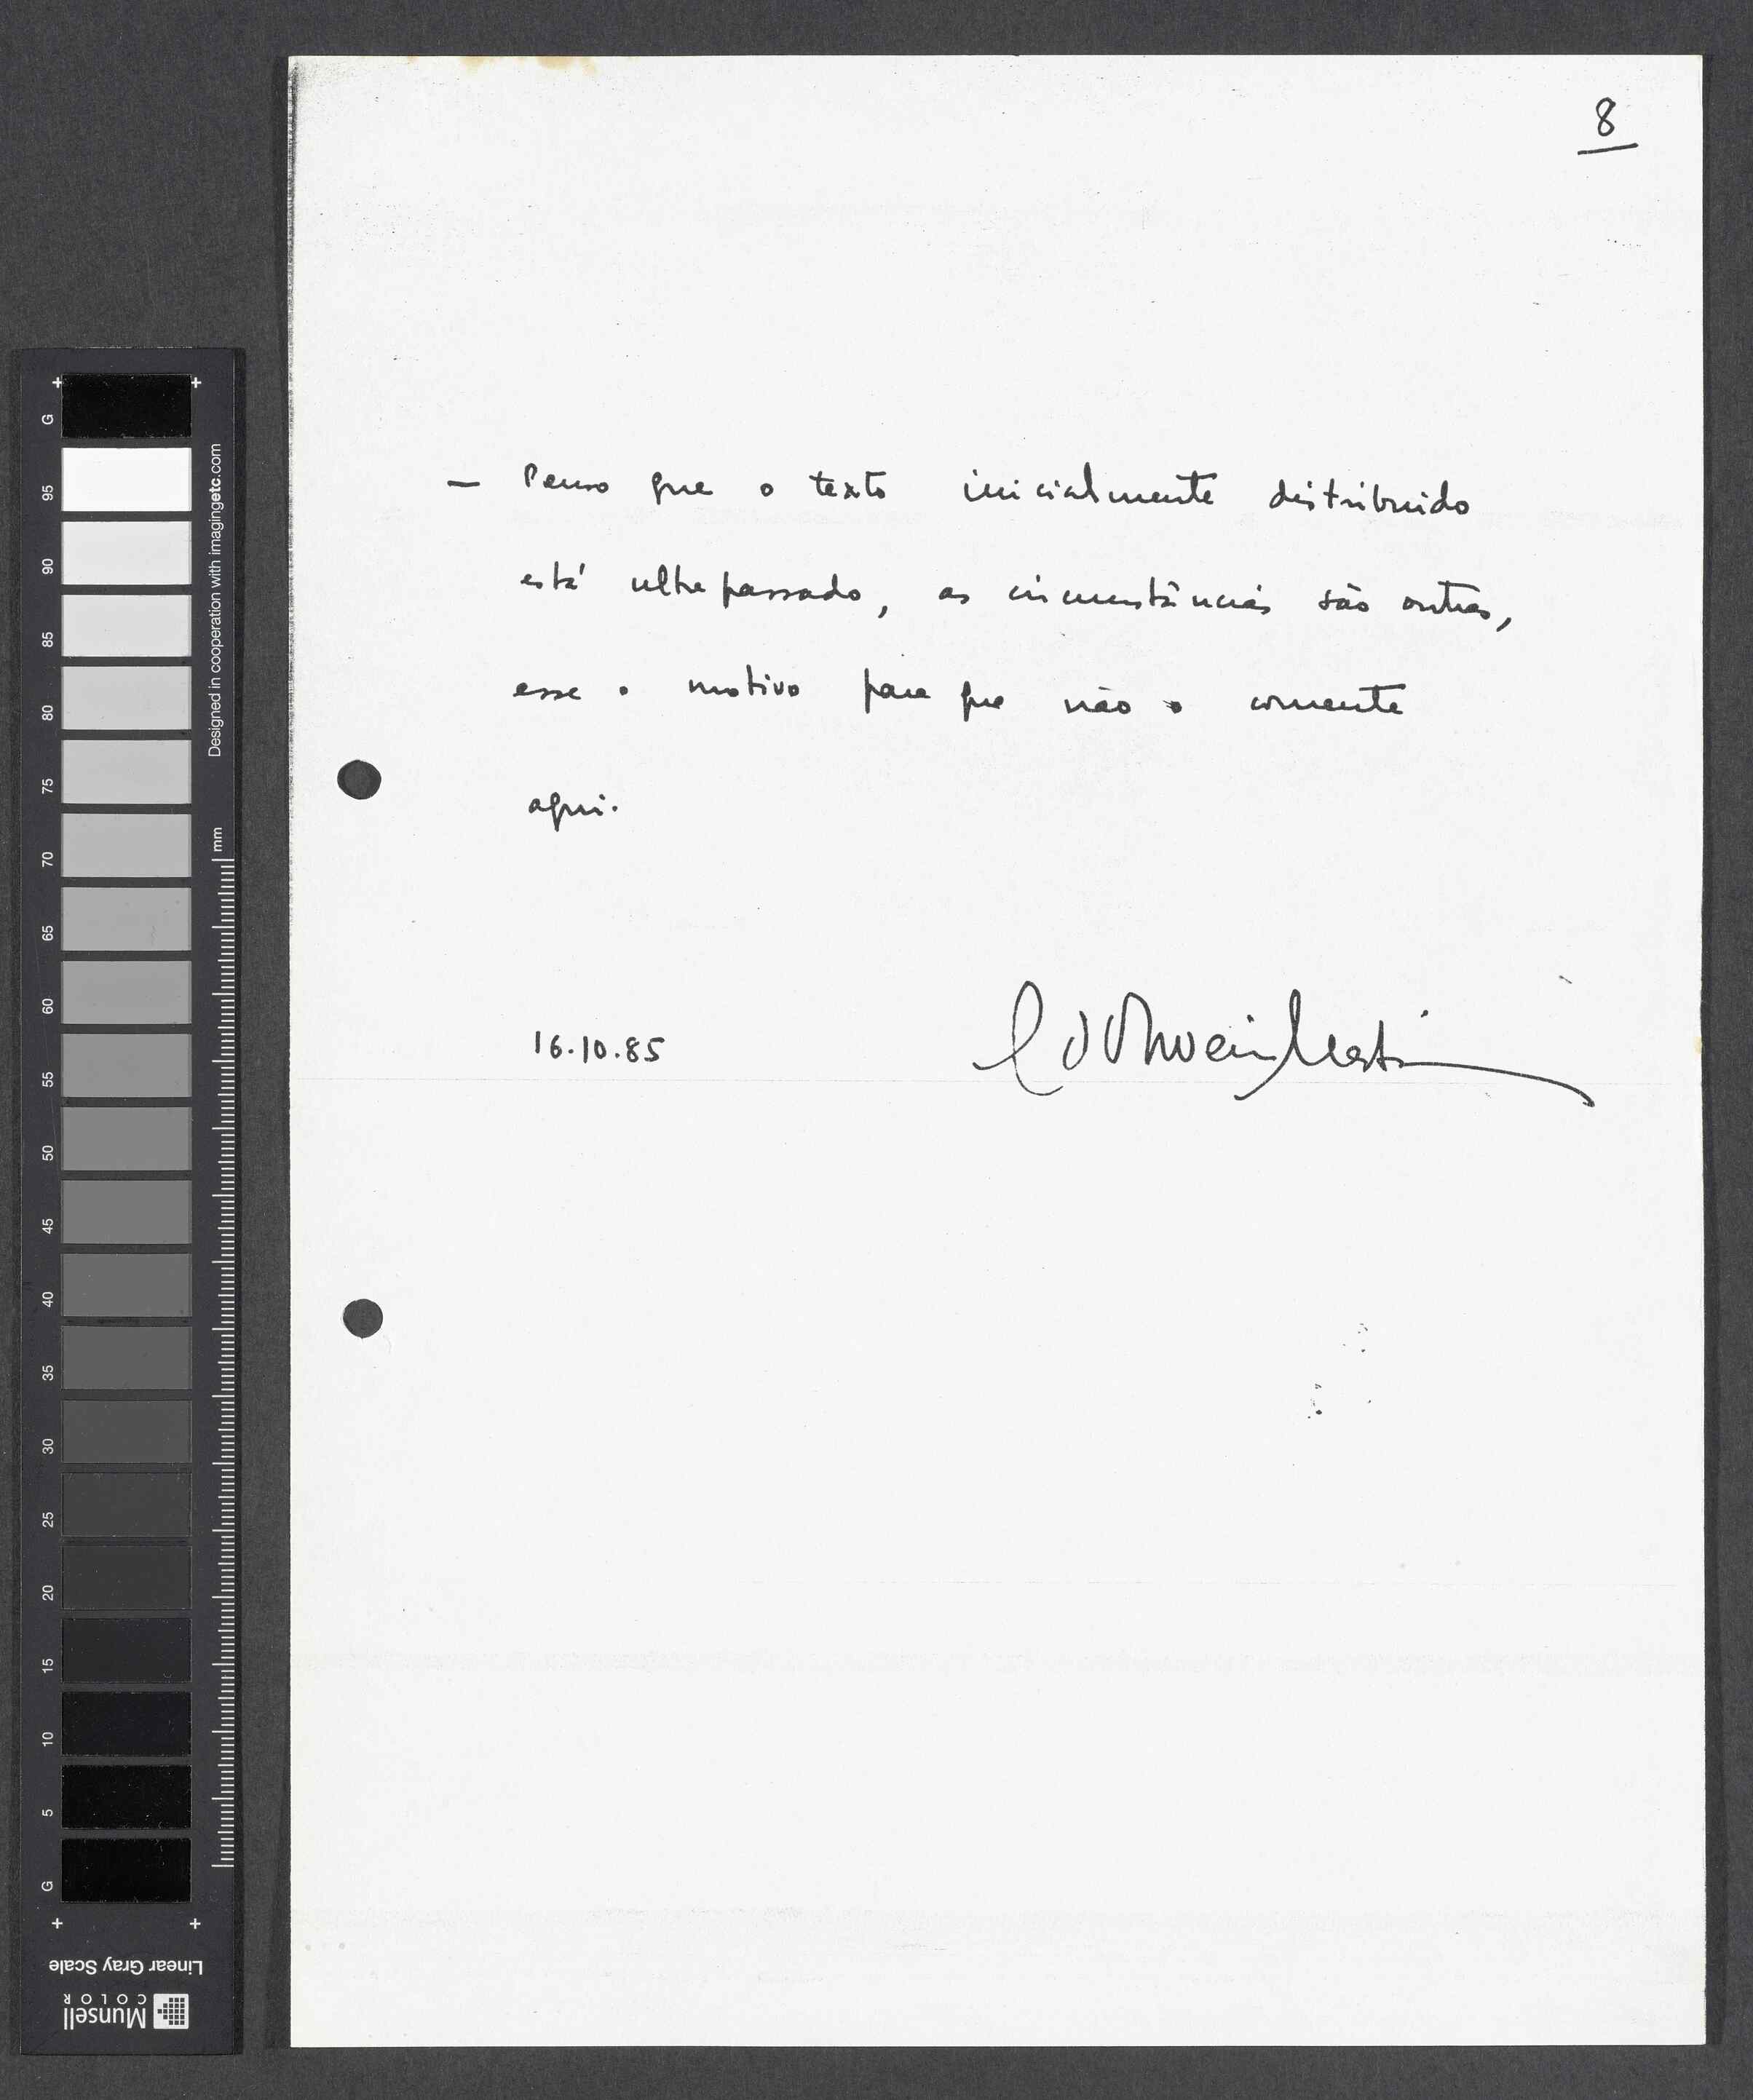 8
— Penso que o texto inicialmente distribuido
está ultrapassado, as circunstâncias são outras,
esse o motivo para que não o comente
aqui.
16.10.85
G
95
90
85
80
75
70
65
60
55
50
45
40
35
30
25
20
15
10
5
G
Designed in cooperation with imagingetc.com
mm
Linear Gray Scale
Munsell
COLOR